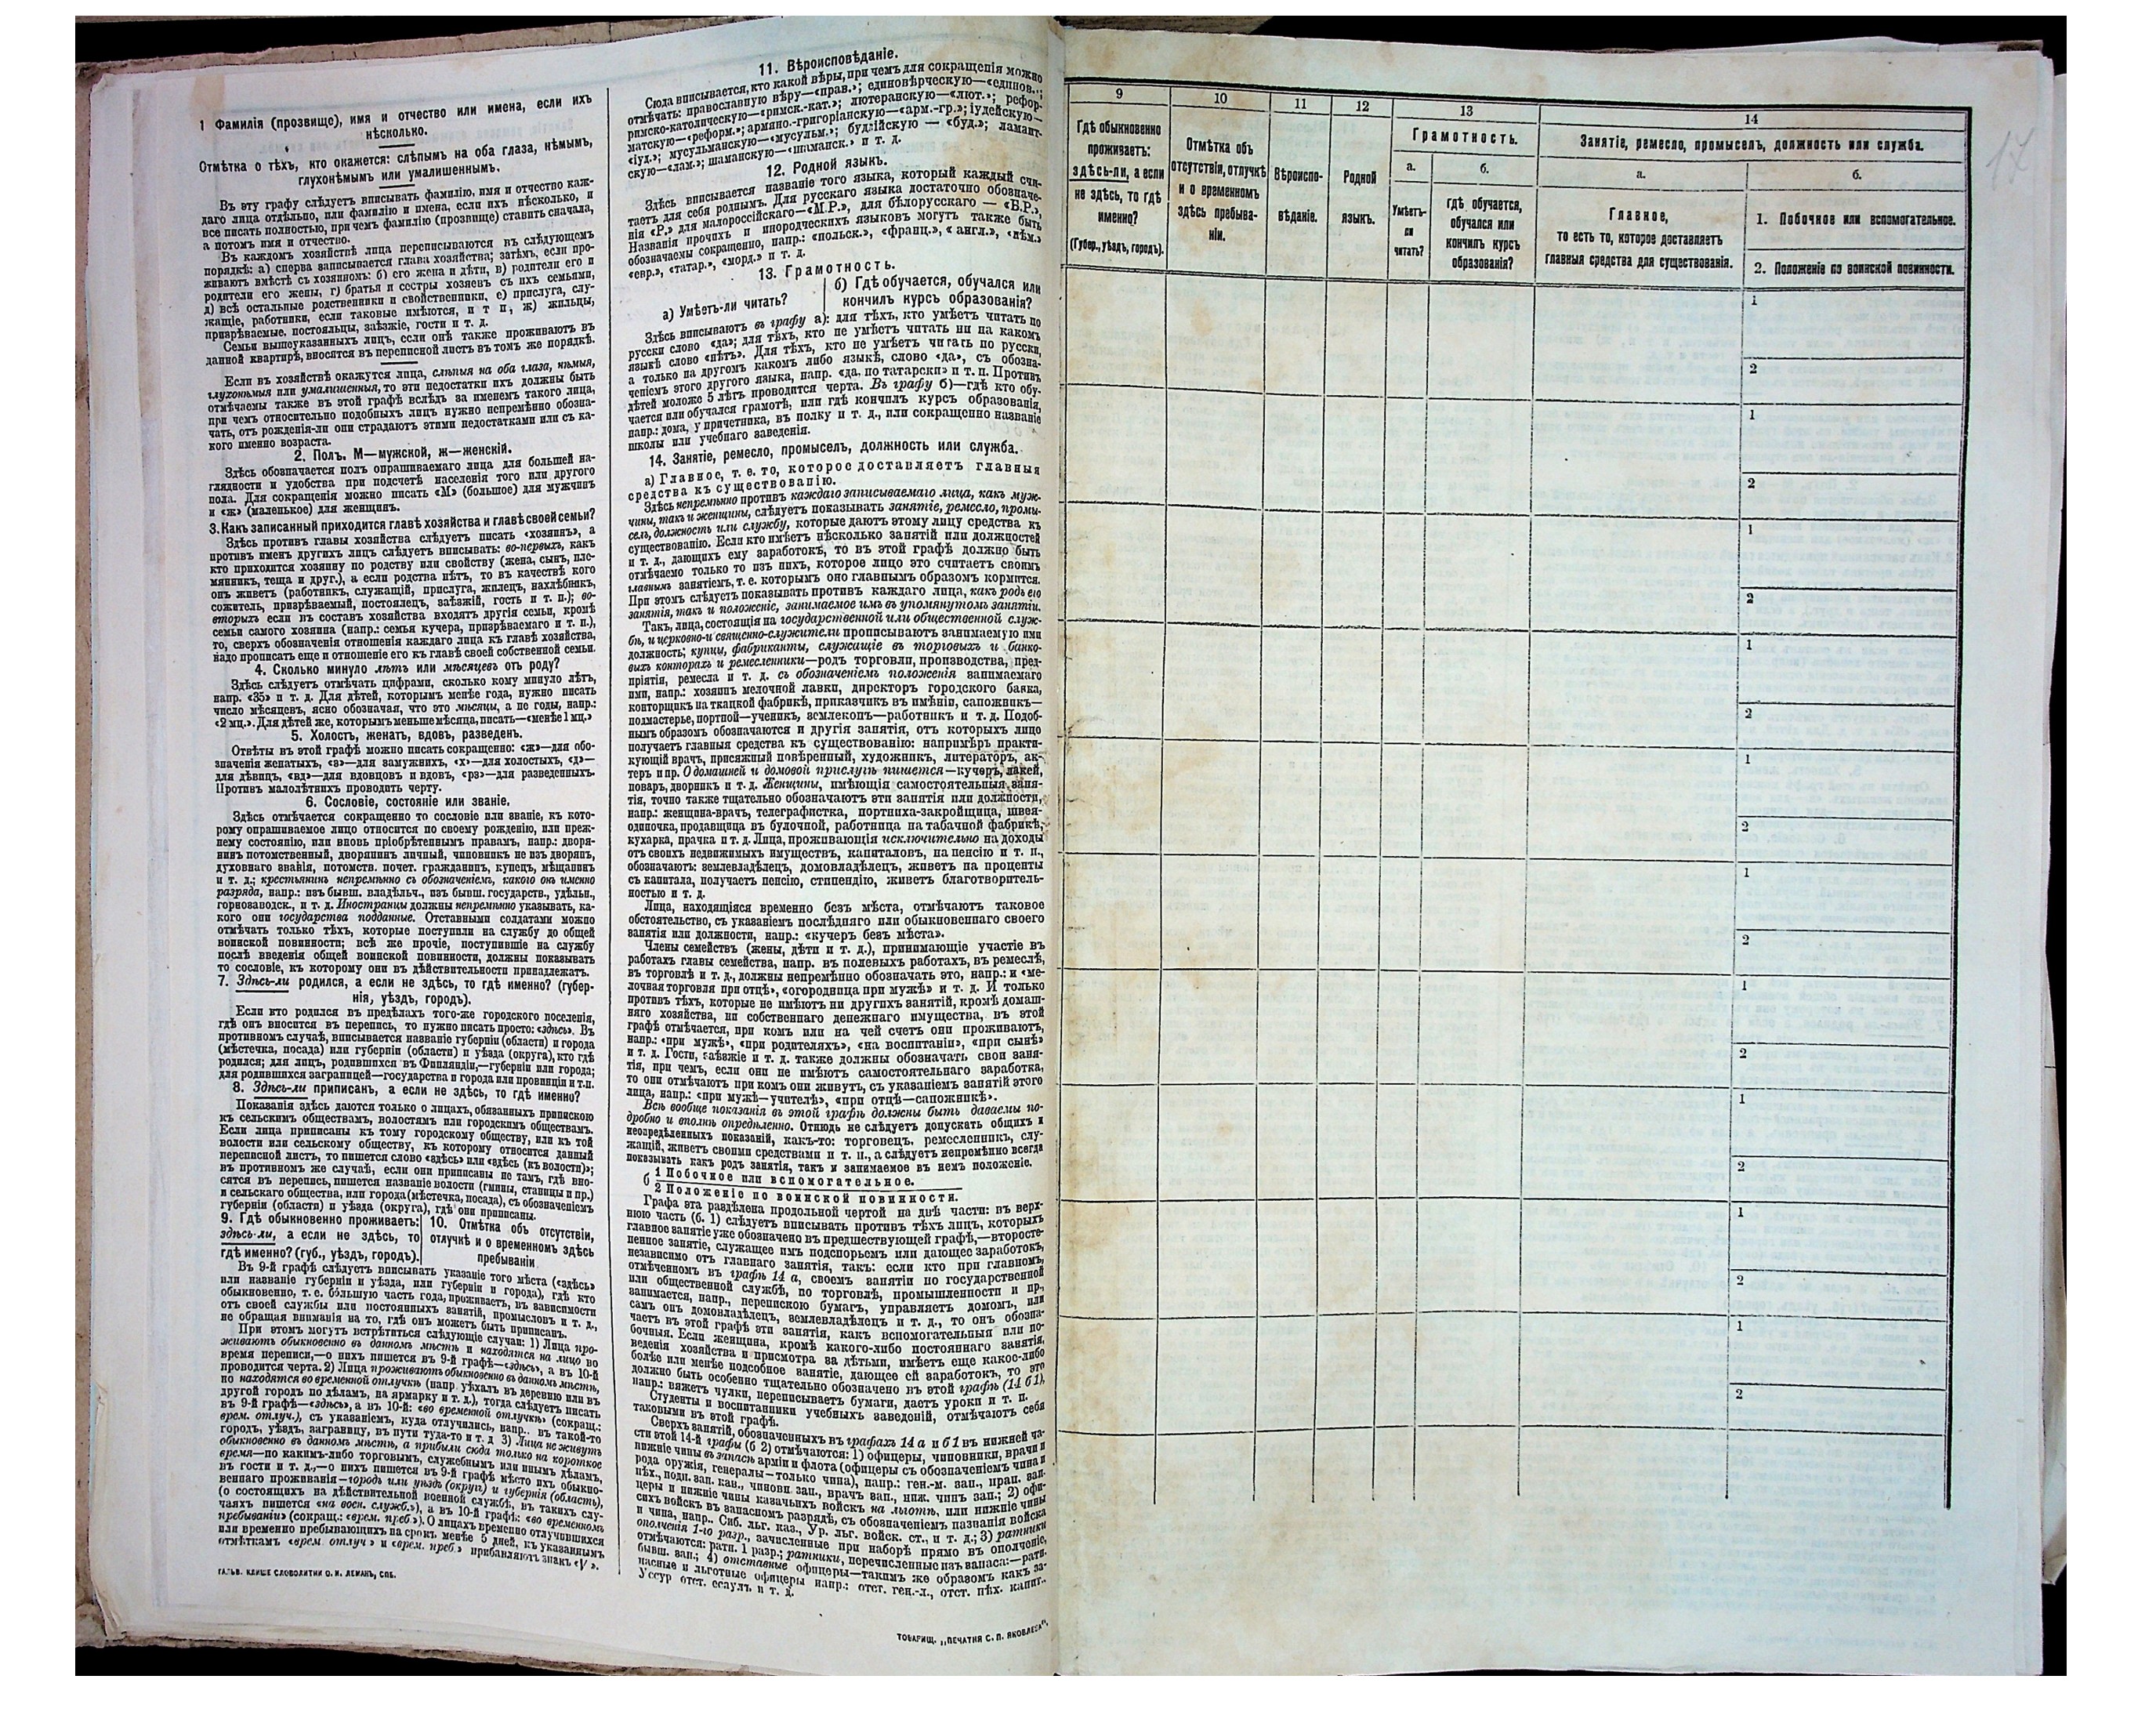 1 Фамилія (прозвище), имя и отчество или имена, если ихъ
нѣсколько.
Отмѣтка о тѣхъ, кто окажется: слѣпымъ на оба глаза, нѣмымъ,
глухонѣмымъ или умалишеннымъ.
Въ эту графу слѣдуетъ вписывать фамилію, имя и отчество каж-
даго лица отдѣльно, или фамилію и имена, если ихъ нѣсколько, и
все писать полностью, при чемъ фамилію (прозвище) ставить сначала,
а потомъ имя и отчество.
Въ каждомъ хозяйствѣ лица переписываются въ слѣдующемъ
порядкѣ: а) сперва записывается глава хозяйства; затѣмъ, если про-
живаютъ вмѣстѣ съ хозяиномъ: б) его жена и дѣти, в) родители его и
родители его жены, г) братья и сестры хозяевъ съ ихъ семьями,
д) всѣ остальные родственники и свойственники, е) прислуга, слу-
жащіе, работники, если таковые имѣются, и т п, ж) жильцы,
призрѣваемые, постояльцы, заѣзжіе, гости и т. д.
Семьи вышеуказанныхъ лицъ, если онѣ также проживаютъ въ
данной квартирѣ, вносятся въ переписной листъ въ томъ же порядкѣ.
Если въ хозяйствѣ окажутся лица, слѣпыя на оба глаза, нѣмыя,
глухонѣмыя или умалишенныя, то эти недостатки ихъ должны быть
отмѣчаемы также въ этой графѣ вслѣдъ за именемъ такого лица,
при чемъ относительно подобныхъ лицъ нужно непремѣнно обозна-
чать, отъ рожденія-ли они страдаютъ этими недостатками или съ ка-
кого именно возраста.
2. Полъ. М—мужской, ж—женскій.
Здѣсь обозначается полъ опрашиваемаго лица для большей на-
глядности и удобства при подсчетѣ населенія того или другого
пола. Для сокращенія можно писать «М» (большое) для мужчинъ
и «ж» (маленькое) для женщинъ.
3. Какъ записанный приходится главѣ хозяйства и главѣ своей семьи?
Здѣсь противъ главы хозяйства слѣдуетъ писать «хозяинъ», а
противъ именъ другихъ лицъ слѣдуетъ вписывать: во-первыхъ, какъ
кто приходится хозяину по родству или свойству (жена, сынъ, пле-
мянникъ, теща и друг.), а если родства нѣтъ, то въ качествѣ кого
онъ живетъ (работникъ, служащій, прислуга, жилецъ, нахлѣбникъ,
сожитель, призрѣваемый, постоялецъ, заѣзжій, гость и т. п.); во-
вторыхъ если въ составъ хозяйства входятъ другія семьи, кромѣ
семьи самого хозяина (напр.: семья кучера, призрѣваемаго и т. п.),
то, сверхъ обозначенія отношенія каждаго лица къ главѣ хозяйства,
надо прописать еще и отношеніе его къ главѣ своей собственной семьи.
4. Сколько минуло лѣтъ или мѣсяцевъ отъ роду?
Здѣсь слѣдуетъ отмѣчать цифрами, сколько кому минуло лѣтъ,
напр. «35» и т. д. Для дѣтей, которымъ менѣе года, нужно писать
число мѣсяцевъ, ясно обозначая, что это мѣсяцы, а не годы, напр.:
«2 мц.». Для дѣтей же, которымъ меньше мѣсяца, писать—«менѣе 1 мц.»
5. Холостъ, женатъ, вдовъ, разведенъ.
Отвѣты въ этой графѣ можно писать сокращенно: «ж»—для обо-
значенія женатыхъ, «з»—для замужнихъ, «х»—для холостыхъ, «д»—
для дѣвицъ, «вд»—для вдовцовъ и вдовъ, «рз»—для разведенныхъ.
Противъ малолѣтнихъ проводить черту.
6. Сословіе, состояніе или званіе.
Здѣсь отмѣчается сокращенно то сословіе или званіе, къ кото-
рому опрашиваемое лицо относится по своему рожденію, или преж-
нему состоянію, или вновь пріобрѣтеннымъ правамъ, напр.: дворя-
нинъ потомственный, дворянинъ личный, чиновникъ не изъ дворянъ,
духовнаго званія, потомств. почет. гражданинъ, купецъ, мѣщанинъ
и т. д.; крестьянинъ непремѣнно съ обозначеніемъ, какого онъ именно
разряда, напр.: изъ бывш. владѣльч., изъ бывш. государств., удѣльн.,
горнозаводск., и т. д. Иностранцы должны непремѣнно указывать, ка-
кого они государства подданные. Отставными солдатами можно
отмѣчать только тѣхъ, которые поступили на службу до общей
воинской повинности; всѣ же прочіе, поступившіе на службу
послѣ введенія общей воинской повинности, должны показывать
то сословіе, къ которому они въ дѣйствительности принадлежатъ.
7. Здѣсь-ли родился, а если не здѣсь, то гдѣ именно? (губер-
нія, уѣздъ, городъ).
Если кто родился въ предѣлахъ того-же городского поселенія,
гдѣ онъ вносится въ перепись, то нужно писать просто: «здѣсь». Въ
противномъ случаѣ, вписывается названіе губерніи (области) и города
(мѣстечка, посада) или губерніи (области) и уѣзда (округа), кто гдѣ
родился; для лицъ, родившихся въ Финляндіи,—губерніи или города;
для родившихся заграницей—государства и города или провинціи и т.п.
8. Здѣсь-ли приписанъ, а если не здѣсь, то гдѣ именно?
Показанія здѣсь даются только о лицахъ, обязанныхъ припискою
къ сельскимъ обществамъ, волостямъ или городскимъ обществамъ.
Если лица приписаны къ тому городскому обществу, или къ той
волости или сельскому обществу, къ которому относится данный
переписной листъ, то пишется слово «здѣсь» или «здѣсь (къ волости)»;
въ противномъ же случаѣ, если они приписаны не тамъ, гдѣ вно-
сятся въ перепись, пишется названіе волости (гмины, станицы и пр.)
и сельскаго общества, или города (мѣстечка, посада), съ обозначеніемъ
губерніи (области) и уѣзда (округа), гдѣ они приписаны.
9. Гдѣ обыкновенно проживаетъ:
здѣсь-ли, а если не здѣсь, то
гдѣ именно? (губ., уѣздъ, городъ).
10. Отмѣтка объ отсутствіи,
отлучкѣ и о временномъ здѣсь
пребываніи
Въ 9-й графѣ слѣдуетъ вписывать указаніе того мѣста («здѣсь»
или названіе губерніи и уѣзда, или губерніи и города), гдѣ кто
обыкновенно, т. е. большую часть года, проживаетъ, въ зависимости
отъ своей службы или постоянныхъ занятій, промысловъ и т. д.,
не обращая вниманія на то, гдѣ онъ можетъ быть приписанъ.
При этомъ могутъ встрѣтиться слѣдующіе случаи: 1) Лица про-
живаютъ обыкновенно въ данномъ мѣстѣ и находятся на лицо во
время переписи,—о нихъ пишется въ 9-й графѣ—«здѣсь», а въ 10-й
проводится черта. 2) Лица проживаютъ обыкновенно въ данномъ мѣстѣ,
но находятся во временной отлучкѣ (напр уѣхалъ въ деревню или въ
другой городъ по дѣламъ, на ярмарку и т. д.), тогда слѣдуетъ писать
въ 9-й графѣ—«здѣсь», а въ 10-й: «во временной отлучкѣ» (сокращ.:
врем. отлуч.), съ указаніемъ, куда отлучились, напр.. въ такой-то
городъ, уѣздъ, заграницу, въ пути туда-то и т. д 3) Лица не живутъ
обыкновенно въ данномъ мѣстѣ, а прибыли сюда только на короткое
время—по какимъ-либо торговымъ, служебнымъ или инымъ дѣламъ,
въ гости и т. д.,—о нихъ пишется въ 9-й графѣ мѣсто ихъ обыкно-
веннаго проживанія—городъ или уѣздъ (округъ) и губернія (область),
(о состоящихъ на дѣйствительной военной службѣ, въ такихъ слу-
чаяхъ пишется «на воен. служб.»), а въ 10-й графѣ: «во временномъ
пребываніи» (сокращ.: «врем. преб.»). О лицахъ временно отлучившихся
или временно пребывающихъ на срокъ менѣе 5 дней, къ указаннымъ
отмѣткамъ «врем. отлуч» и «врем. преб.» прибавляютъ знакъ «V».
ГАЛЬВ. КЛИШЕ СЛОВОЛИТНИ О. И. ЛЕМАНЪ, СПБ.
11. Вѣроисповѣданіе.
Сюда вписывается, кто какой вѣры, при чемъ для сокращенія можно
отмѣчать: православную вѣру—«прав.»; единовѣрческую—«единов.»;
римско-католическую—«римск.-кат.»; лютеранскую—«лют.»; рефор-
матскую—«реформ.»; армяно.-григоріанскую—«арм.-гр.»; іудейскую—
«іуд.»; мусульманскую—«мусульм.»; буддійскую — «буд.»; ламаит-
скую—«лам.»; шаманскую—«шаманск.» и т. д.
12. Родной языкъ.
Здѣсь вписывается названіе того языка, который каждый счи-
таетъ для себя роднымъ. Для русскаго языка достаточно обозначе-
нія «Р.» для малороссійскаго—«М.Р.», для бѣлорусскаго — «Б.Р.»,
Названія прочихъ и инородческихъ языковъ могутъ также быть
обозначаемы сокращенно, напр.: «польск.», «франц.», « англ.», «нѣм.»
«евр.», «татар.», «морд.» и т. д.
13. Грамотность.
а) Умѣетъ-ли читать?
б) Гдѣ обучается, обучался или
кончилъ курсъ образованія?
Здѣсь вписываютъ въ графу а): для тѣхъ, кто умѣетъ читать по
русски слово «да»; для тѣхъ, кто не умѣетъ читать ни на какомъ
языкѣ слово «нѣтъ». Для тѣхъ, кто не умѣетъ читать по русски,
а только на другомъ какомъ либо языкѣ, слово «да», съ обозна-
ченіемъ этого другого языка, напр. «да, по татарски» и т. п. Противъ
дѣтей моложе 5 лѣтъ проводится черта. Въ графу б)—гдѣ кто обу-
чается или обучался грамотѣ, или гдѣ кончилъ курсъ образованія,
напр.: дома, у причетника, въ полку и т. д., или сокращенно названіе
школы или учебнаго заведенія.
14. Занятіе, ремесло, промыселъ, должность или служба.
а) Главное, т. е. то, которое доставляетъ главныя
средства къ существованію.
Здѣсь непремѣнно противъ каждаго записываемаго лица, какъ муж-
чины, такъ и женщины, слѣдуетъ показывать занятіе, ремесло, промы-
селъ, должность или службу, которые даютъ этому лицу средства къ
существованію. Если кто имѣетъ нѣсколько занятій или должностей
и т. д., дающихъ ему заработокъ, то въ этой графѣ должно быть
отмѣчаемо только то изъ нихъ, которое лицо это считаетъ своимъ
главнымъ занятіемъ, т. е. которымъ оно главнымъ образомъ кормится.
При этомъ слѣдуетъ показывать противъ каждаго лица, какъ родъ его
занятія, такъ и положеніе, занимаемое имъ въ упомянутомъ занятіи.
Такъ, лица, состоящія на государственной или общественной служ-
бѣ, и церковно-и священно-служители прописываютъ занимаемую ими
должность; купцы, фабриканты, служащіе въ торговыхъ и банко-
выхъ конторахъ и ремесленники—родъ торговли, производства, пред-
пріятія, ремесла и т. д. съ обозначеніемъ положенія занимаемаго
ими, напр.: хозяинъ мелочной лавки, директоръ городского банка,
конторщикъ на ткацкой фабрикѣ, приказчикъ въ имѣніи, сапожникъ—
подмастерье, портной—ученикъ, землекопъ—работникъ и т. д. Подоб-
нымъ образомъ обозначаются и другія занятія, отъ которыхъ лицо
получаетъ главныя средства къ существованію: напримѣръ практи-
кующій врачъ, присяжный повѣренный, художникъ, литераторъ, ак-
теръ и пр. О домашней и домовой прислугѣ пишется—кучеръ, лакей,
поваръ, дворникъ и т. д. Женщины, имѣющія самостоятельныя заня-
тія, точно также тщательно обозначаютъ эти занятія или должности,
напр.: женщина-врачъ, телеграфистка, портниха-закройщица, швея-
одиночка, продавщица въ булочной, работница на табачной фабрикѣ,
кухарка, прачка и т. д. Лица, проживающія исключительно на доходы
отъ своихъ недвижимыхъ имуществъ, капиталовъ, на пенсію и т. п.,
обозначаютъ: землевладѣлецъ, домовладѣлецъ, живетъ на проценты
съ капитала, получаетъ пенсію, стипендію, живетъ благотворитель-
ностью и т. д.
Лица, находящіяся временно безъ мѣста, отмѣчаютъ таковое
обстоятельство, съ указаніемъ послѣдняго или обыкновеннаго своего
занятія или должности, напр.: «кучеръ безъ мѣста».
Члены семействъ (жены, дѣти и т. д.), принимающіе участіе въ
работахъ главы семейства, напр. въ полевыхъ работахъ, въ ремеслѣ,
въ торговлѣ и т. д., должны непремѣнно обозначать это, напр.: и «ме-
лочная торговля при отцѣ», «огородница при мужѣ» и т. д. И только
противъ тѣхъ, которые не имѣютъ ни другихъ занятій, кромѣ домаш-
няго хозяйства, ни собственнаго денежнаго имущества, въ этой
графѣ отмѣчается, при комъ или на чей счетъ они проживаютъ,
напр.: «при мужѣ», «при родителяхъ», «на воспитаніи», «при сынѣ»
и т. д. Гости, заѣзжіе и т. д. также должны обозначать свои заня-
тія, при чемъ, если они не имѣютъ самостоятельнаго заработка,
то они отмѣчаютъ при комъ они живутъ, съ указаніемъ занятій этого
лица, напр.: «при мужѣ—учителѣ», «при отцѣ—сапожникѣ».
Всѣ вообще показанія въ этой графѣ должны быть даваемы по-
дробно и вполнѣ опредѣленно. Отнюдь не слѣдуетъ допускать общихъ и
неопредѣленныхъ показаній, какъ-то: торговецъ, ремесленникъ, слу-
жащій, живетъ своими средствами и т. п., а слѣдуетъ непремѣнно всегда
показывать какъ родъ занятія, такъ и занимаемое въ немъ положеніе.
б 1 Побочное или вспомогательное.
2 Положеніе по воинской повинности.
Графа эта раздѣлена продольной чертой на двѣ части: въ верх-
нюю часть (б. 1) слѣдуетъ вписывать противъ тѣхъ лицъ, которыхъ
главное занятіе уже обозначено въ предшествующей графѣ,—второсте-
пенное занятіе, служащее имъ подспорьемъ или дающее заработокъ,
независимо отъ главнаго занятія, такъ: если кто при главномъ,
отмѣченномъ въ графѣ 14 а, своемъ занятіи по государственной
или общественной службѣ, по торговлѣ, промышленности и пр.,
занимается, напр., перепискою бумагъ, управляетъ домомъ, или
самъ онъ домовладѣлецъ, землевладѣлецъ и т. д., то онъ обозна-
чаетъ въ этой графѣ эти занятія, какъ вспомогательныя или по-
бочныя. Если женщина, кромѣ какого-либо постояннаго занятія,
веденія хозяйства и присмотра за дѣтьми, имѣетъ еще какое-либо
болѣе или менѣе подсобное занятіе, дающее ей заработокъ, то это
должно быть особенно тщательно обозначено въ этой графѣ (14 б1),
напр.: вяжетъ чулки, переписываетъ бумаги, даетъ уроки и т. п.
Студенты и воспитанники учебныхъ заведеній, отмѣчаютъ себя
таковыми въ этой графѣ.
Сверхъ занятій, обозначенныхъ въ графахъ 14 а и б1 въ нижней ча-
сти этой 14-й графы (б 2) отмѣчаются: 1) офицеры, чиновники, врачи и
нижніе чины въ запасѣ арміи и флота (офицеры съ обозначеніемъ чина и
рода оружія, генералы—только чина), напр.: ген.-м. зап., прап. зап.
пѣх., подп. зап. кав., чиновн. зап., врачъ зап., ниж. чинъ зап.; 2) офи-
церы и нижніе чины казачьихъ войскъ на льготѣ, или нижніе чины
сихъ войскъ въ запасномъ разрядѣ, съ обозначеніемъ названія войска
и чина, напр.. Сиб. льг. каз., Ур. льг. войск. ст., и т. д.; 3) ратники
ополченія 1-го разр., зачисленные при наборѣ прямо въ ополченіе,
отмѣчаются: ратн. 1 разр.; ратники, перечисленные изъ запаса:—ратн.
бывш. зап.; 4) отставные офицеры—такимъ же образомъ какъ за-
пасные и льготные офицеры напр.: отст. ген.-л., отст. пѣх. капит..
Уссур отст. есаулъ и т. д.
ТОВАРИЩ. „ПЕЧАТНЯ С. П. ЯКОВЛЕВА“.
9
Гдѣ обыкновенно
проживаетъ:
здѣсь-ли, а если
не здѣсь, то гдѣ
именно?
(Губер., уѣздъ, городъ).
10
Отмѣтка объ
отсутствіи, отлучкѣ
и о временномъ
здѣсь пребыва-
ніи.
11
Вѣроиспо-
вѣданіе.
12
Родной
языкъ.
13
Грамотность.
а.
Умѣетъ-
ли
читать?
б.
гдѣ обучается,
обучался или
кончилъ курсъ
образованія?
14
Занятіе, ремесло, промыселъ, должность или служба.
а.
Главное,
то есть то, которое доставляетъ
главныя средства для существованія.
б.
1. Побочное или вспомогательное.
2. Положеніе по воинской повинности.
1
2
1
2
1
2
1
2
1
2
1
2
1
2
1
2
1
2
1
2